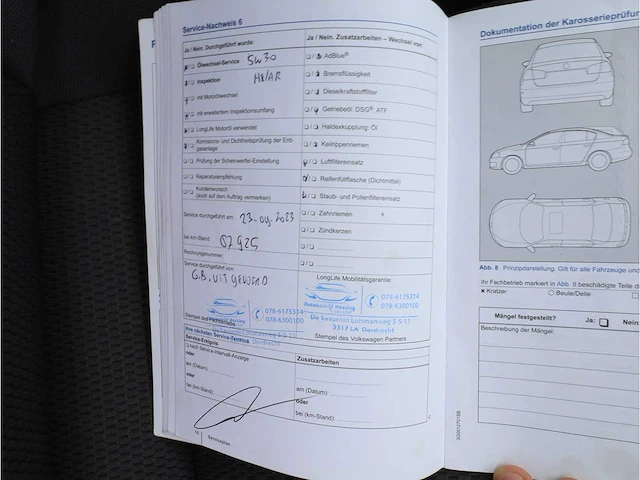 Service-Nachweis 6
Ja / Nein. Durchgeführt wurde:
Ölwechsel-Service 5W30
Inspektion
mit Motorölwechsel
mit erweitertem Inspektionsumfang
LongLife Motoröl verwendet
Korrosions- und Dichtheitsprüfung der Erdgasanlage
Prüfung der Scheinwerfer-Einstellung
Reparaturempfehlung
Kundenwunsch
(auch auf dem Auftrag vermerken)
Service durchgeführt am: 2023
bei km-Stand:
Rechnungsnummer:
Service durchgeführt von:
078-6175314
078-6300100
Stempel des Fachbetriebs
Ihre nächsten Service-Termine
Service-Ereignis
nach Service-Intervall-Anzeige
oder
am (Datum):
oder
bei (km-Stand):
Serviceplan
Ja / Nein. Zusatzarbeiten – Wechsel von:
AdBlue®
Bremsflüssigkeit
Dieselkraftstofffilter
Getriebeöl: DSG®, ATF
Haldexkupplung: Öl
Keilrippenriemen
Luftfiltereinsatz
Reifenfüllflasche (Dichtmittel)
Staub- und Pollenfiltereinsatz
Zahnriemen
Zündkerzen
LongLife Mobilitätsgarantie:
078-6175314
078-6300100
De Savornin Lohmanweg 3-5-11
3317 LA Dordrecht
Stempel des Volkswagen Partners
Zusatzarbeiten
am (Datum):
oder
bei (km-Stand):
Dokumentation der Karosserieprüfun
Abb. 8 Prinzipdarstellung. Gilt für alle Fahrzeuge und
Ihr Fachbetrieb markiert in Abb. 8 beschädigte Teile d
× Kratzer Beule/Delle
Mängel festgestellt? Ja: Nein
Beschreibung der Mängel: